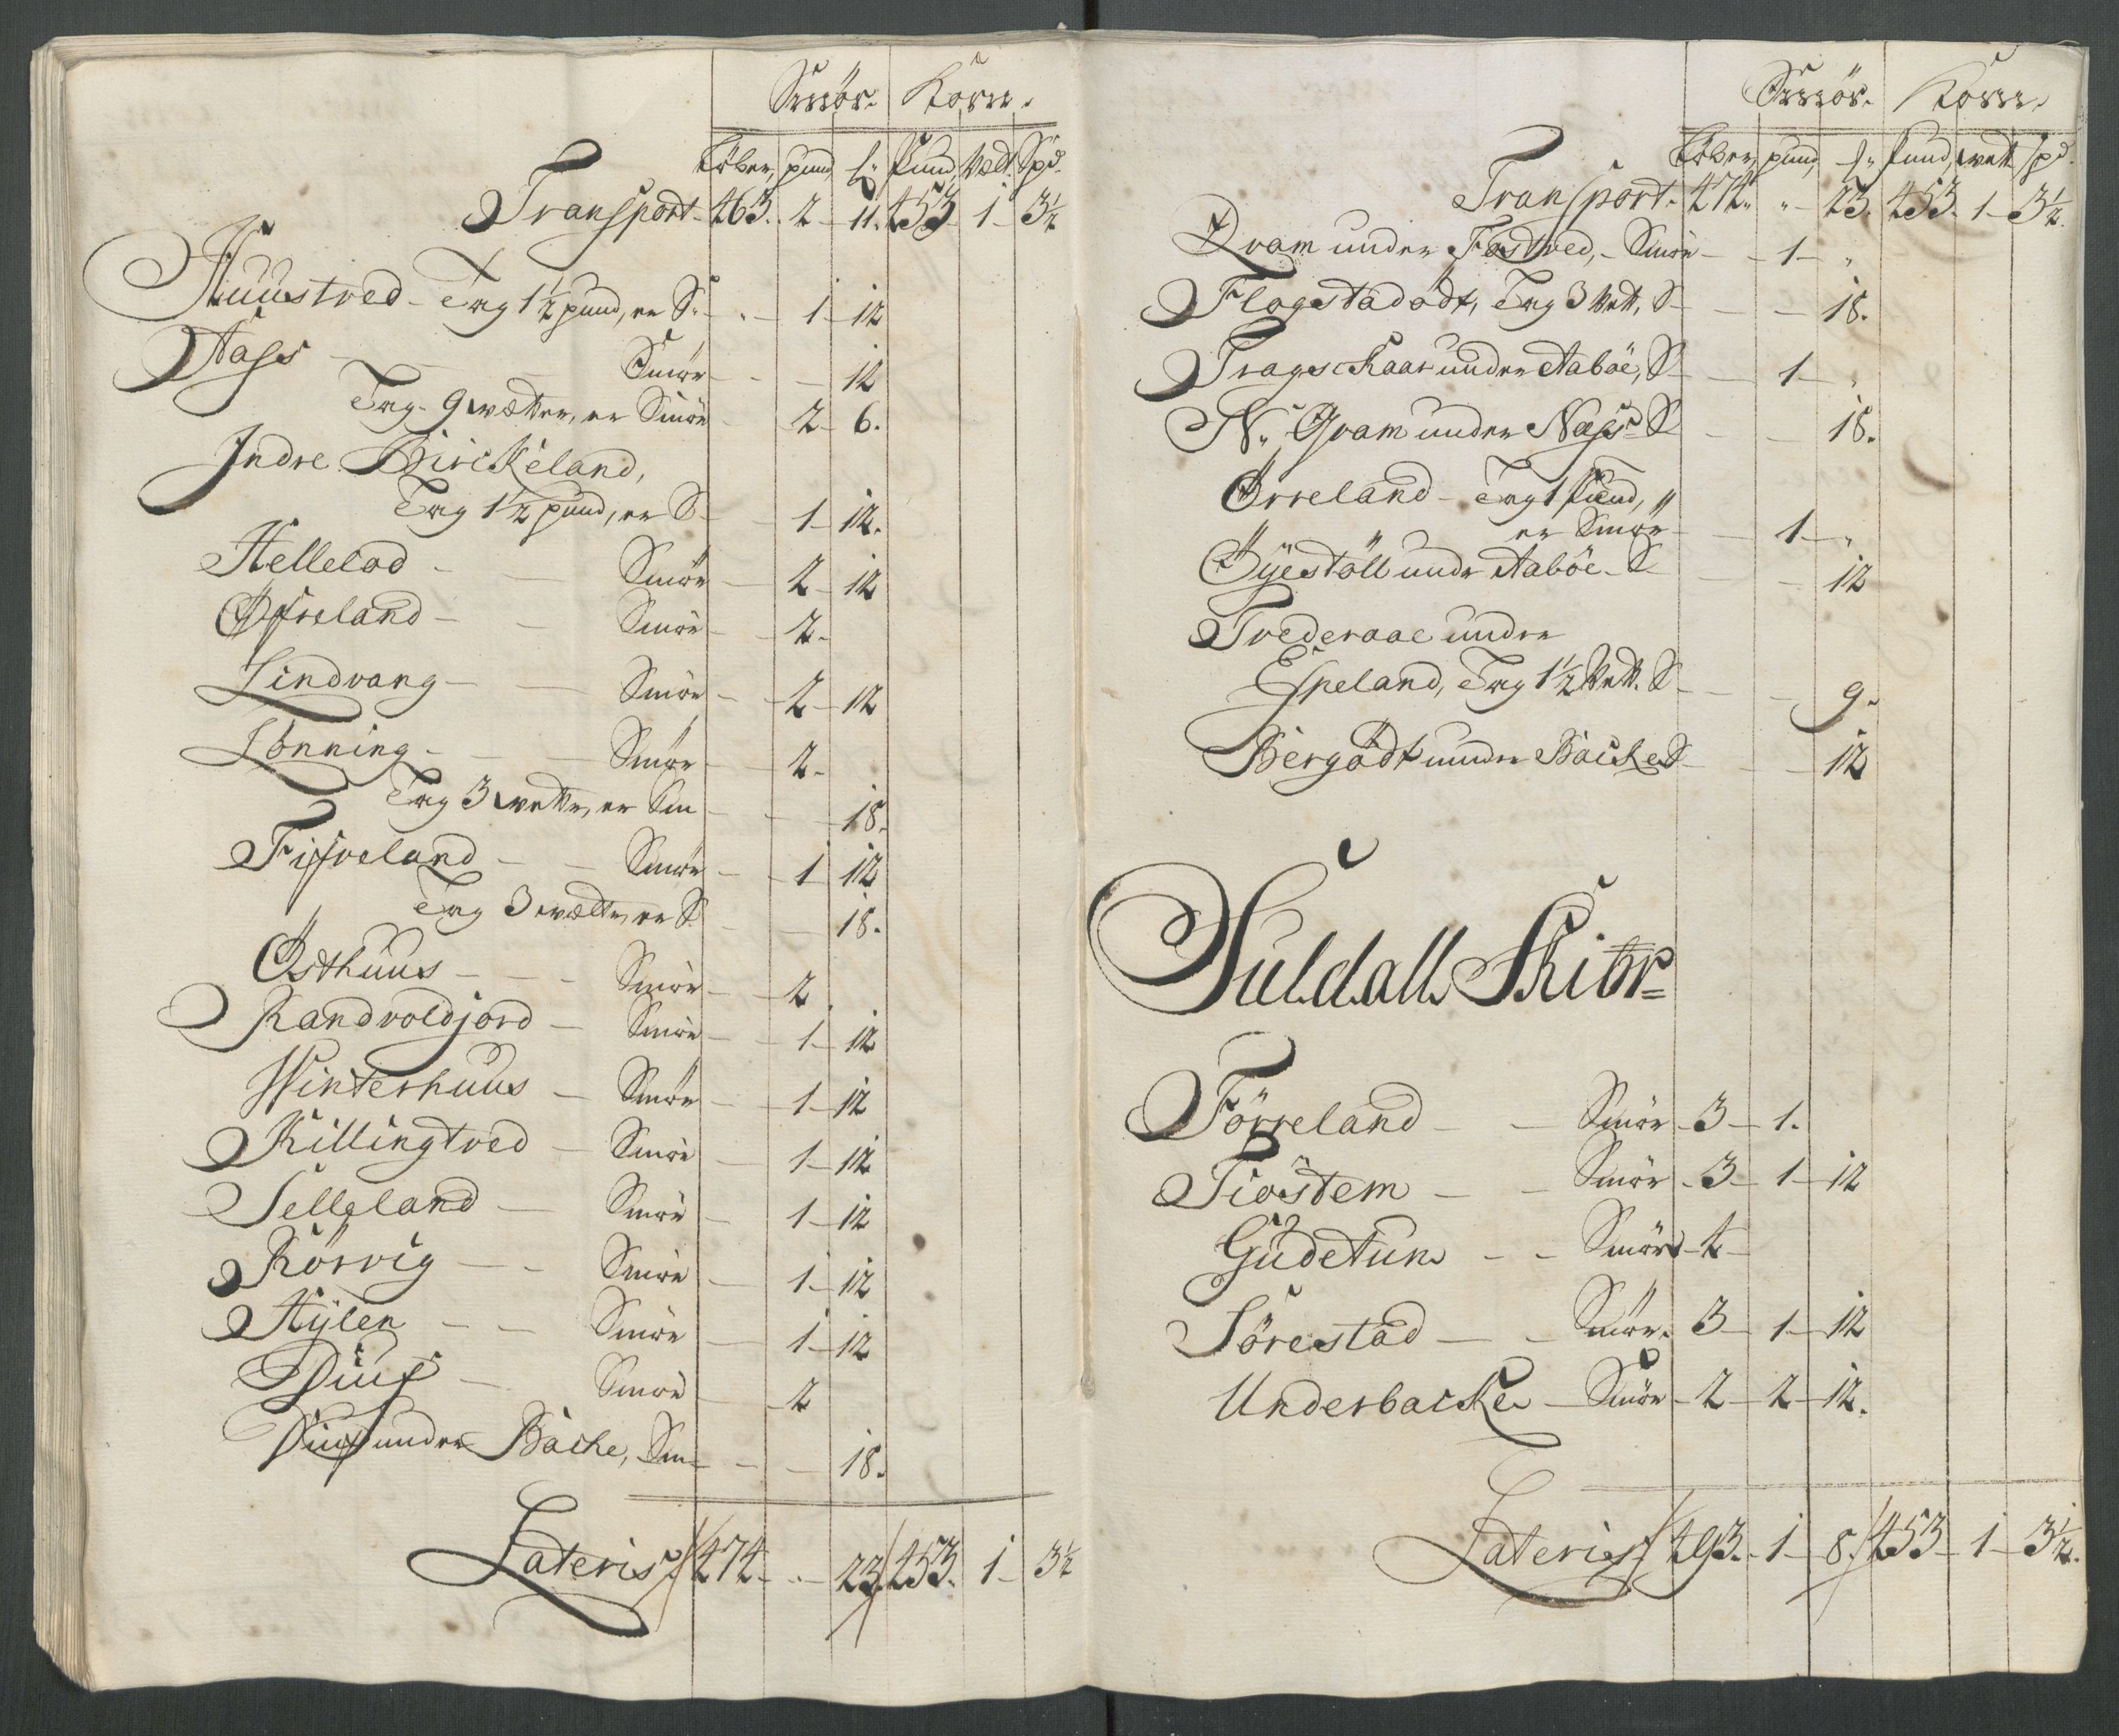 Smör. Korn.
Löber, pund, £ Pund, Vett. Spd.
Transport 463. 2 - 11. 453 - 1 - 3½
Huustved - Tag 1½ pund, er S. - 1 - 12
Aass - Smör - 12
Tag 9 vetter, er Smör 2 - 6.
Indre Birckeland,
Tag 1½ pund, er S 1 - 12.
Hellelad - Smör - 2 - 12
Öfreland - Smör - 2.
Lindvang - Smör - 2 - 12
Lönning - Smör 2.
Tag 3 vetter, er Sm 18.
Fifveland - Smör 1 12
Tag 3 vetter er S 18.
Östhuus - Smör 2
Randvoldjord - Smör 1 - 12
Winterhuus - Smör 1 - 12
Killingtved - Smör 1 - 12
Selleland - Smör 1 - 12
Rörvig - Smör 1 - 12
Hÿlen - Smör 1 - 12
Diuf - Smör 2
Diuf under Backe, Sm 18.
Lateris 474. " - 23. 453. 1 - 3½
Smör. Korn.
Löber, pund, £ Pund, vett Spd.
Transport. 474. " 23. 453. 1 - 3½.
Qvam under Fostved, - Smör - 1 - "
Flogstadödt, Tag 3 Vett, S 18.
Tragschaar under Aaböe, S 1 - "
N. Qvam under Nass S 18.
Örreland - Tag 1 Pund,
er Smör 1 - "
Öÿestöll under Aaböe S 12
Tvederaae under
Espeland, Tag 1½ Vett. S 9.
Bergödt under Backe S 12
Suldals Skibr=
Förreland - Smör 3 - 1.
Tiöstem - Smör 3 - 1 - 12
Gudetun - Smör 4
Sörestad - Smör. 3 - 1 - 12
Underbacke - Smör - 2 - 2 - 12.
Lateris 493. 1 - 8. 453 - 1 - 3½.